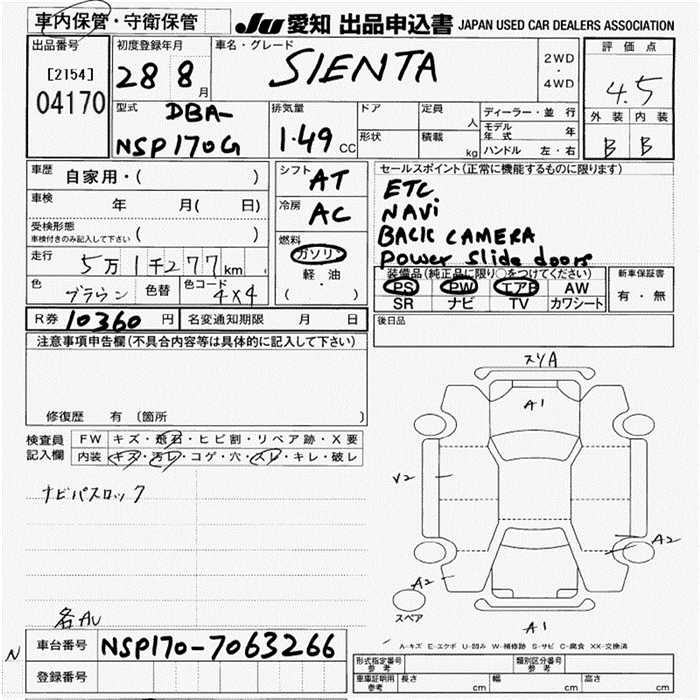 車内保管・守衛保管
JU 愛知 出品申込書 JAPAN USED CAR DEALERS ASSOCIATION
出品番号
[2154]
04170
初度登録年月
28 8月
車名・グレード
SIENTA
2WD
・
4WD
評価点
4.5
外装 内装
B B
型式
DBA-
NSP170G
排気量
1.49 CC
ドア
形状
定員 人
積載 kg
ディーラー・並行
モデル年式 年
ハンドル 左・右
車歴 自家用・( )
車検 年 月( 日)
受検形態
車検付きのみ記入して下さい ( )
走行 5万1千277km
色 ブラウン 色替 色コード 4X4
シフト AT
冷房 AC
燃料
ガソリン
軽・油
( )
セールスポイント(正常に機能するものに限ります)
ETC
NAVi
BACK CAMERA
Power Slide doors
装備品(純正品に限り○をつけてください)
PS PW エアB AW
SR ナビ TV カワシート
新車保証書
有・無
R券 10360 円 名変通知期限 月 日
後日品
注意事項申告欄(不具合内容等は具体的に記入して下さい)
修復歴 有 〔箇所 〕
検査員
記入欄
FW キズ・飛石・ヒビ割・リペア跡・X要
内装 キズ・汚レ・コゲ・穴・スレ・キレ・破レ
ナビパスロック
スリA
A1
V2
A2
A2
スペア
A1
A-キズ E-エクボ U-凹み W-補修跡 S-サビ C-腐食 XX-交換済
各AU
N
車台番号 NSP170-7063266
登録番号
形式指定番号
参考
類別区分番号
参考
車庫証明用
参考
長さ cm 幅 cm 高さ cm